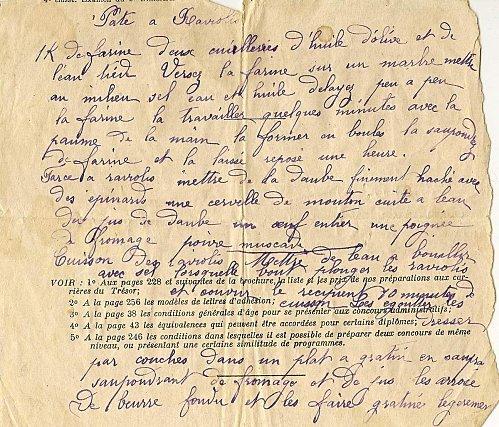 Pate a Raviolis
1K de farine deux cuillerées d'huile d'olive et de
l'eau tiéd Versez la farine sur un marbre mettre
au milieu sel eau et huile delayez peu a peu
la farine la travailler quelques minutes avec la
paume de la main la former en boules la saupoudrez
de farine et la laisse reposé une heure.
Farce a raviolis mettre de la daube finement haché avec
des épinards une cervelle de mouton cuite a leau
du jus de daube un oeuf entier une poignée
de fromage poivre muscade
Cuisson des raviolis Mettre de leau a bouillir
avec sel lorsquelle bout plonger les raviolis
VOIR : 1º Aux pages 228 et suivantes de la brochure, la liste et les prix de nos préparations aux carrières du Trésor;
et couvrir le recipient 10 minutes de
2º A la page 256 les modèles de lettres d'adhésion;
cuisson Les égoutter les
3º A la page 38 les conditions générales d'âge pour se présenter aux concours administratifs;
4º A la page 43 les équivalences qui peuvent être accordées pour certains diplômes;
dresser
5º A la page 246 les conditions dans lesquelles il est possible de préparer deux concours de même
niveau, ou présentant une certaine similitude de programmes.
par couches dans un plat a gratin en
saupoudrant de fromage et de jus les arrose
de beurre fondu et les faire gratiné légèrement